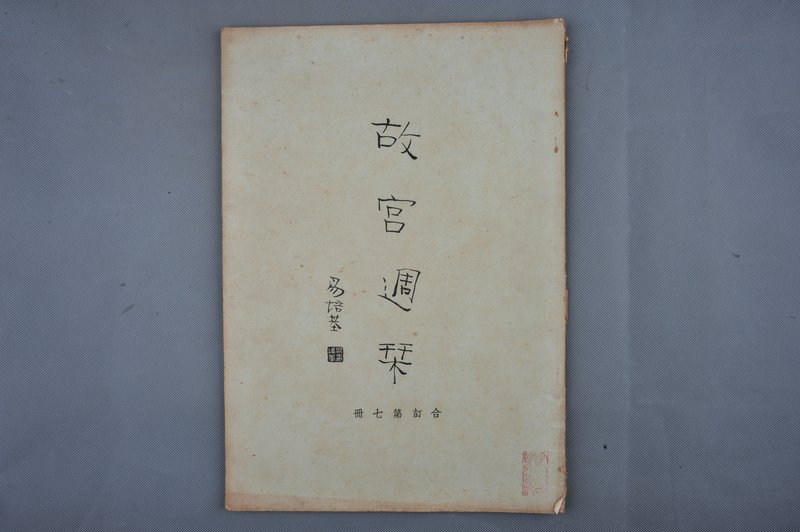 故宮週栞
易培基
合訂第七冊